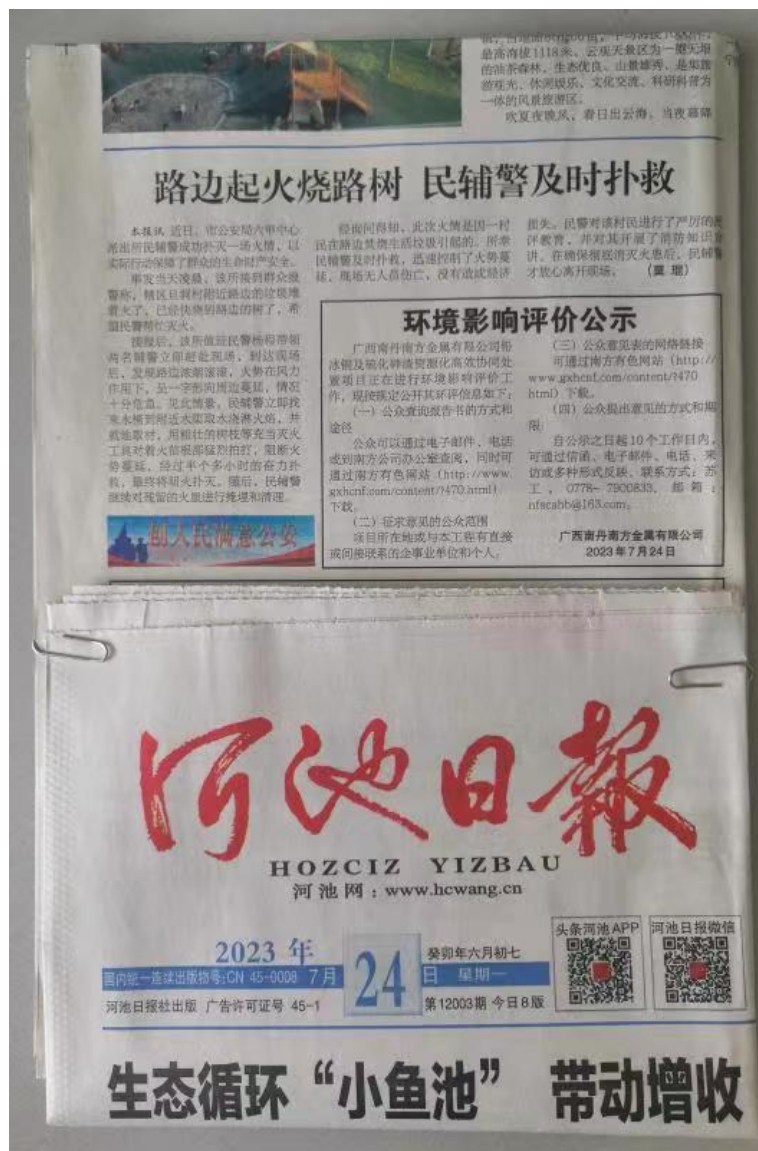 最高海拔1118米。云观天景区为一望无垠
的油茶森林，生态优良，山景雄秀，是集旅
游观光、休闲娱乐、文化交流、科研科普为
一体的风景旅游区。
吹夏夜晚风，看日出云海。当夜幕降
路边起火烧路树 民辅警及时扑救
本报讯 近日，市公安局六甲中心
派出所民辅警成功扑灭一场火情，以
实际行动保障了群众的生命财产安全。
事发当天凌晨，该所接到群众报
警称，辖区旦洞村附近路边的垃圾堆
着火了，已经快烧到路边的树了，希
望民警帮忙灭火。
接报后，该所值班民警杨程带领
两名辅警立即赶赴现场，到达现场
后，发现路边浓烟滚滚，火势在风力
作用下，呈一字形向周边蔓延，情况
十分危急。见此情景，民辅警立即找
来水桶到附近水渠取水浇淋火焰，并
就地取材，用粗壮的树枝等充当灭火
工具对着火苗根部猛烈拍打，阻断火
势蔓延，经过半个多小时的奋力扑
救，最终将明火扑灭。随后，民辅警
继续对残留的火星进行掩埋和清理。
经询问得知，此次火情是因一村
民在路边焚烧生活垃圾引起的。所幸
民辅警及时扑救，迅速控制了火势蔓
延，现场无人员伤亡，没有造成经济
损失。民警对该村民进行了严厉的批
评教育，并对其开展了消防知识宣
讲，在确保彻底消灭火患后，民辅警
才放心离开现场。 （莫琨）
创人民满意公安
环境影响评价公示
广西南丹南方金属有限公司铅
冰铜及硫化砷渣资源化高效协同处
置项目正在进行环境影响评价工
作，现按规定公开其环评信息如下：
（一）公众查阅报告书的方式和
途径
公众可以通过电子邮件、电话
或到南方公司办公室查阅，同时可
通过南方有色网站（http://www.
gxhcnf.com/content/?470.html）
下载。
（二）征求意见的公众范围
项目所在地或与本工程有直接
或间接联系的企事业单位和个人。
（三）公众意见表的网络链接
可通过南方有色网站（http://
www.gxhcnf.com/content/?470
html）下载。
（四）公众提出意见的方式和期
限：
自公示之日起10个工作日内，
可通过信函、电子邮件、电话、来
访或多种形式反映。联系方式：苏
工，0778-7900833，邮箱：
nfscahb@163.com。
广西南丹南方金属有限公司
2023年7月24日
河池日報
HOZCIZ YIZBAU
河池网：www.hcwang.cn
头条河池APP
河池日报微信
2023年
癸卯年六月初七
国内统一连续出版物号:CN 45-0008 7月 24 日 星期一
河池日报社出版 广告许可证号 45-1
第12003期 今日8版
生态循环“小鱼池” 带动增收